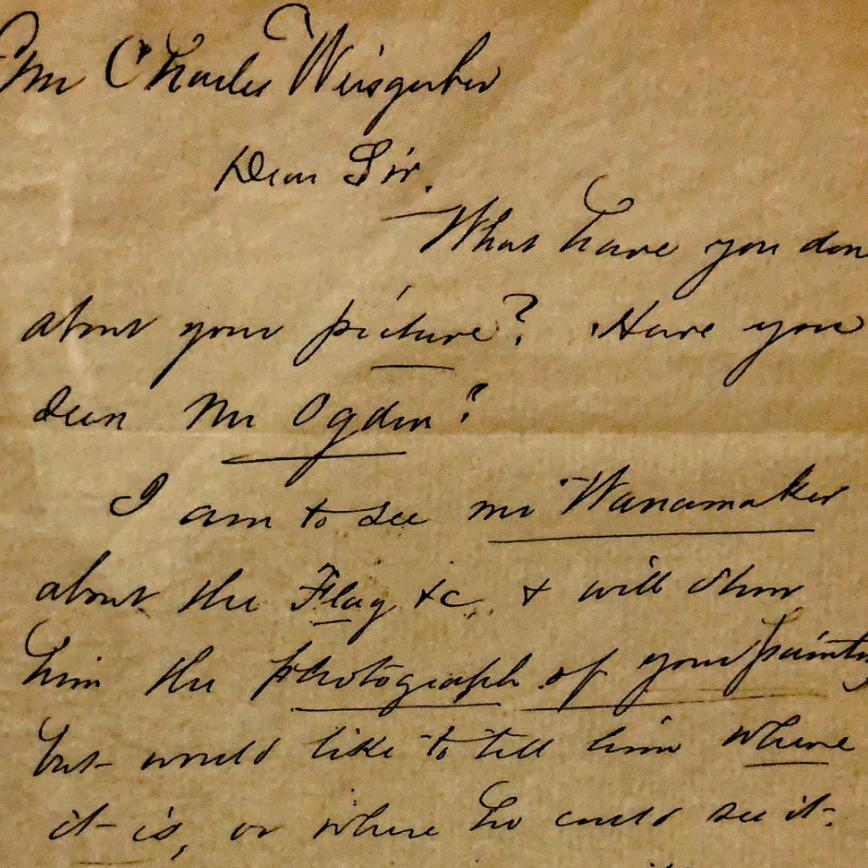 Mr Charles Weisgerber
Dear Sir.
What have you don
about your picture? Have you
seen Mr Ogden?
I am to see Mr Wanamaker
about the Flag &c, & will show
him the photograph of your paintg
but would like to tell him where
it is, or where he could see it.